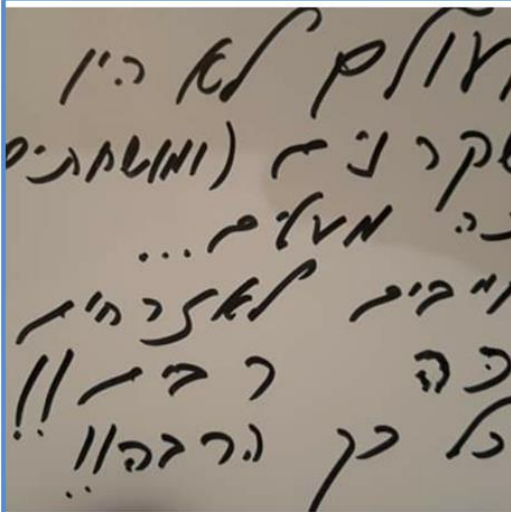 עולם לא היו
שקרנים (ומושחתים
כה מעטים...
חייבים לאזרחים
כה רבים!!
כל כך הרבה!!